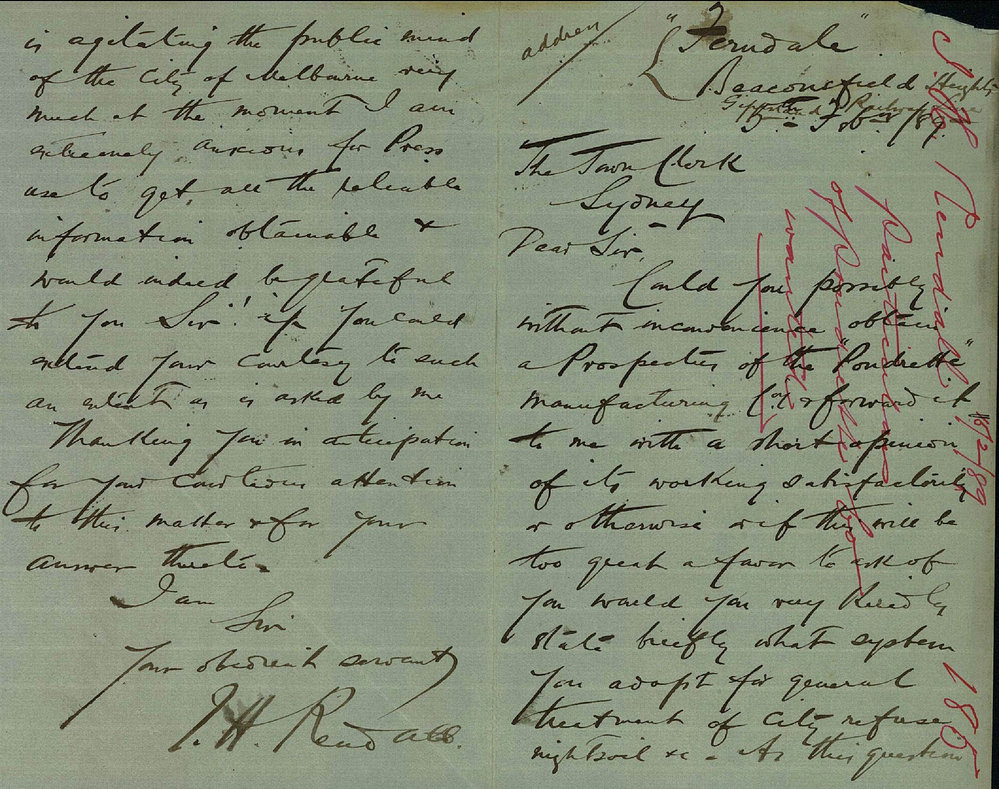 address
"Ferndale"
Beaconsfield Heights
Gippsland Railway
5th Feby /89.
The Town Clerk
Sydney
Dear Sir,
Could you possibly
without inconvenience obtain
a Prospectus of the "Poudrette"
manufacturing Coy & forward it
to me with a short opinion
of its working satisfactorily
or otherwise & if this will be
too great a favor to ask of
you would you very kindly
state briefly what system
you adopt for general
treatment of City refuse
nightsoil &c - As this question
is agitating the public mind
of the City of Melbourne very
much at the moment I am
extremely anxious for Press
use to get all the reliable
information obtainable &
would indeed be grateful
to you Sir! if you could
extend your courtesy to such
an extent as is asked by me
Thanking you in aticipation
for your courtious attention
to this matter & for your
answer thereto.
I am
Sir
Your obedient servant
J. H. Rendall.
J. H. Rendall
particulars
of Poudrette Co
wanted
185